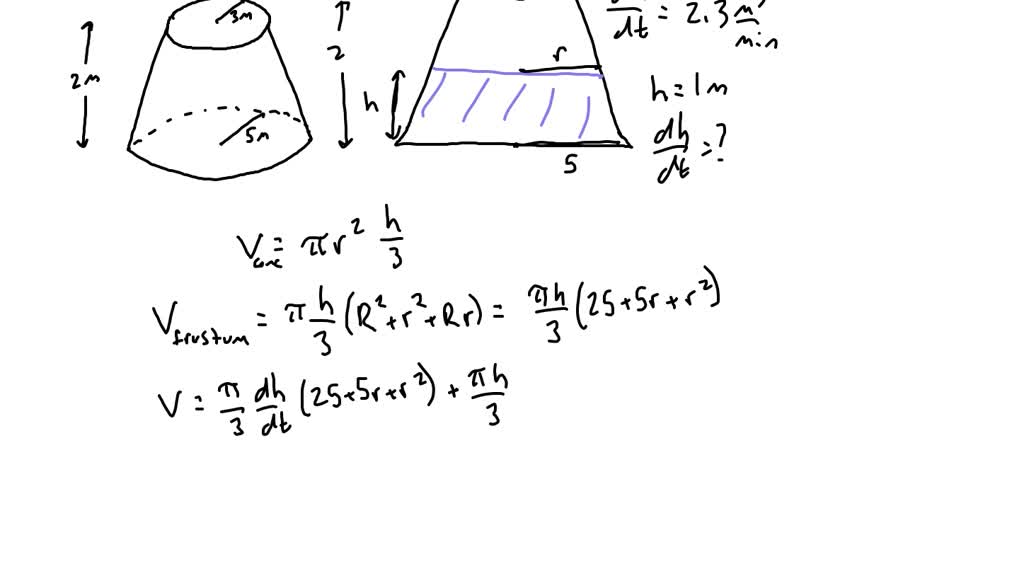 3m
2m
5m
2
h
r
5
dt = 2.3 m³/min
h = 1m
dh/dt = ?
V_cone = πr² h/3
V_frustum = π h/3 (R² + r² + Rr) = πh/3 (25 + 5r + r²)
V = π/3 dh/dt (25 + 5r + r²) + πh/3